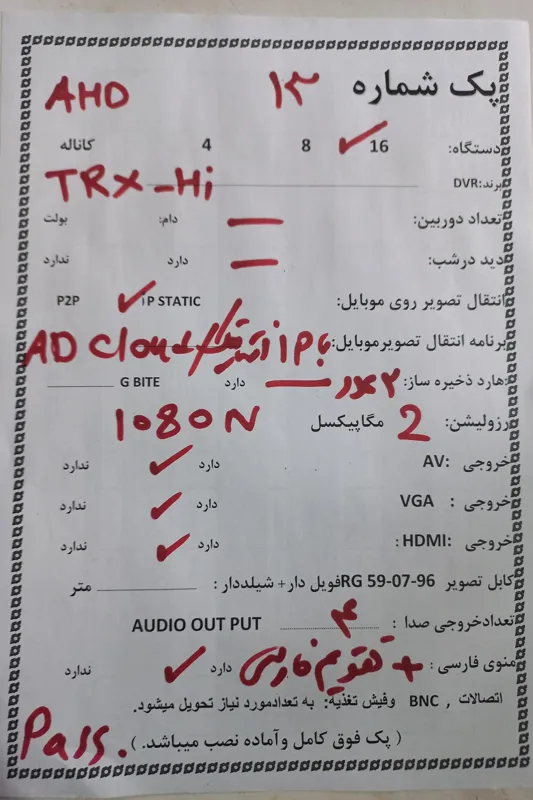 پک شماره ۱۳ AHD
دستگاه: 16 ✓ 8 4 کاناله
برند DVR: TRX-Hi
تعداد دوربین: — دام: بولت
دید درشب: — دارد ندارد
انتقال تصویر روی موبایل: IP STATIC ✓ P2P
برنامه انتقال تصویرموبایل: با IP AD Cloud
هارد ذخیره ساز: ۲ عدد — دارد G BITE
رزولیشن: 2 مگاپیکسل 1080N
خروجی AV: دارد ✓ ندارد
خروجی VGA : دارد ✓ ندارد
خروجی HDMI: دارد ✓ ندارد
کابل تصویر RG 59-07-96 فویل دار+ شیلددار : متر
تعدادخروجی صدا : ۴ AUDIO OUT PUT
منوی فارسی : + تقویم فارسی دارد ✓ ندارد
اتصالات , BNC وفیش تغذیه: به تعدادمورد نیاز تحویل میشود.
( پک فوق کامل وآماده نصب میباشد. )
Pass.